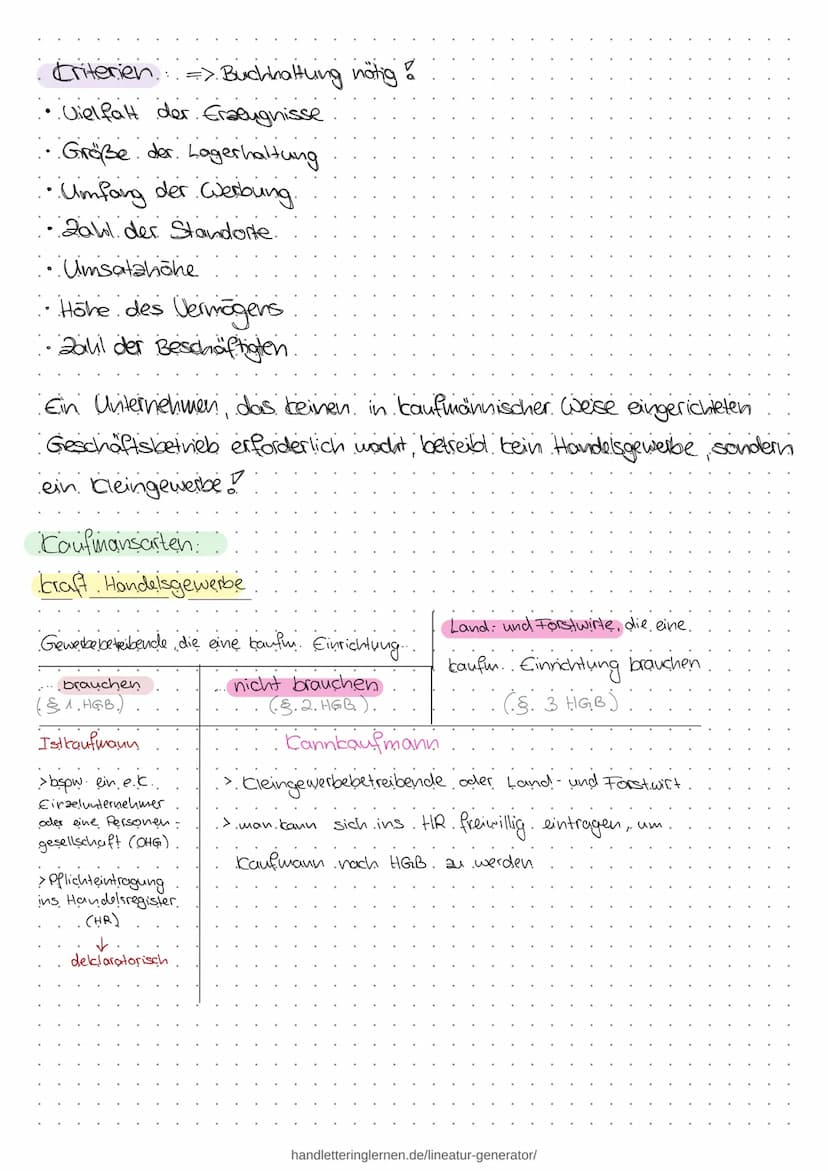 Kriterien: => Buchhaltung nötig!
• Vielfalt der Erzeugnisse
• Größe der Lagerhaltung
• Umfang der Werbung
• Zahl der Standorte
• Umsatzhöhe
• Höhe des Vermögens
• Zahl der Beschäftigten
Ein Unternehmen, das keinen in kaufmännischer Weise eingerichteten
Geschäftsbetrieb erforderlich macht, betreibt kein Handelsgewerbe, sondern
ein Kleingewerbe!
Kaufmansarten:
kraft Handelsgewerbe
Gewerbebetreibende, die eine kaufm. Einrichtung...
... brauchen
(§ 1 HGB)
... nicht brauchen
(§ 2 HGB)
Land- und Forstwirte, die eine
kaufm. Einrichtung brauchen
(§ 3 HGB)
Istkaufmann
>bspw. ein e.K.
Einzelunternehmer
oder eine Personen-
gesellschaft (OHG)
>Pflichteintragung
ins Handelsregister
(HR)
↓
deklaratorisch
Kannkaufmann
> Kleingewerbebetreibende oder Land- und Forstwirt
> man kann sich ins HR freiwillig eintragen, um
Kaufmann nach HGB zu werden
handletteringlernen.de/lineatur-generator/